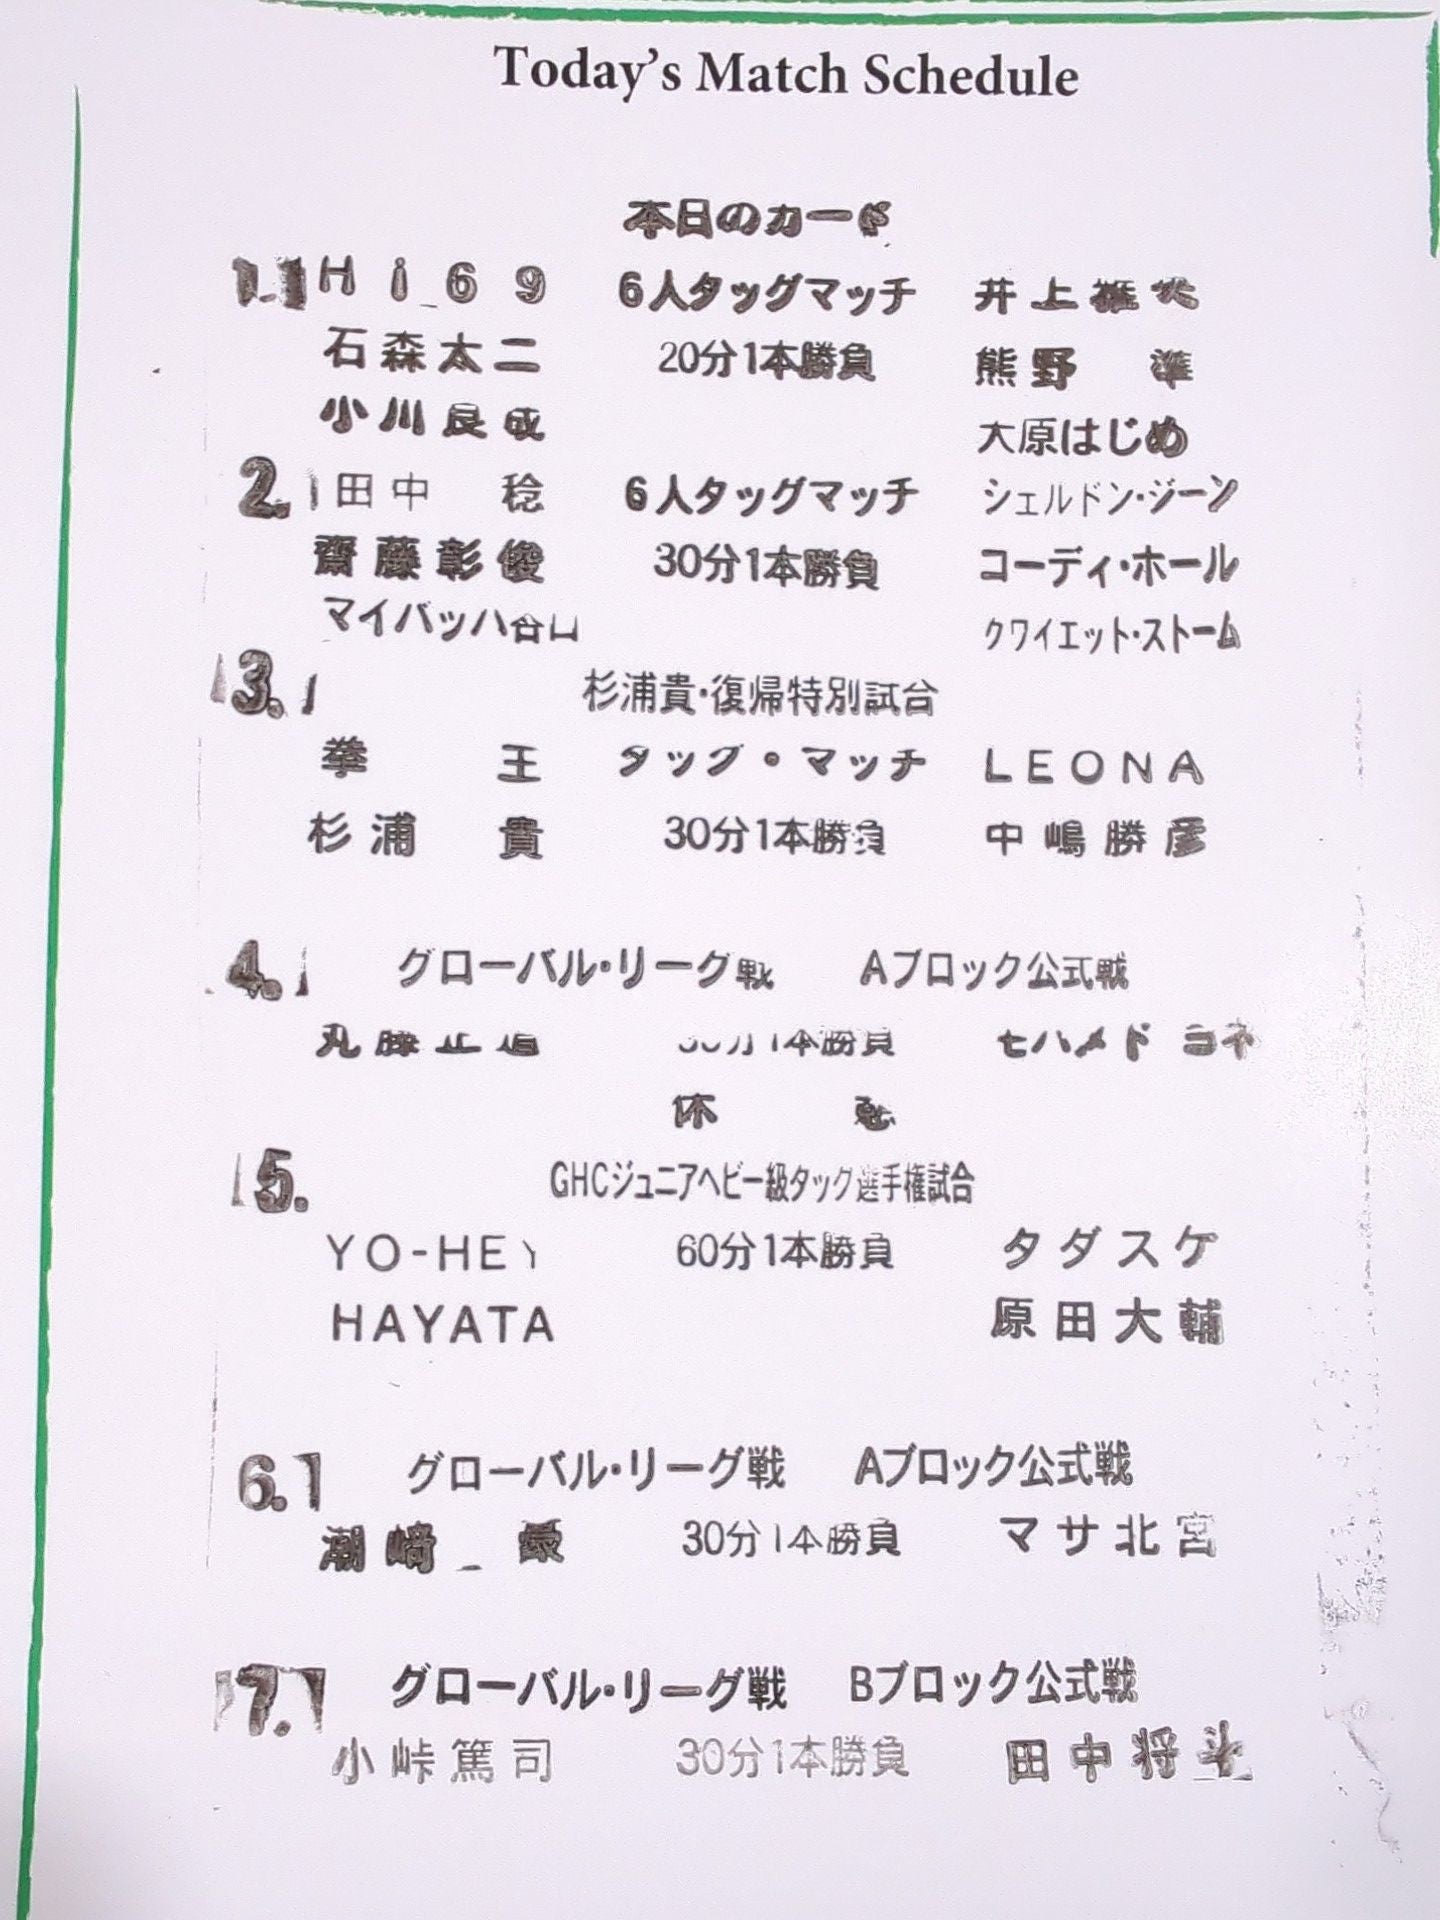 Today's Match Schedule
本日のカード
1. Hi69 6人タッグマッチ 井上雅央
石森太二 20分1本勝負 熊野 準
小川良成 大原はじめ
2. 田中 稔 6人タッグマッチ シェルドン・ジーン
齋藤彰俊 30分1本勝負 コーディ・ホール
マイバッハ谷口 クワイエット・ストーム
3. 杉浦貴・復帰特別試合
拳 王 タッグ・マッチ LEONA
杉浦 貴 30分1本勝負 中嶋勝彦
4. グローバル・リーグ戦 Aブロック公式戦
丸藤正道 30分1本勝負 モハメド ヨネ
休 憩
5. GHCジュニアヘビー級タッグ選手権試合
YO-HEY 60分1本勝負 タダスケ
HAYATA 原田大輔
6. グローバル・リーグ戦 Aブロック公式戦
潮﨑 豪 30分1本勝負 マサ北宮
7. グローバル・リーグ戦 Bブロック公式戦
小峠篤司 30分1本勝負 田中将斗